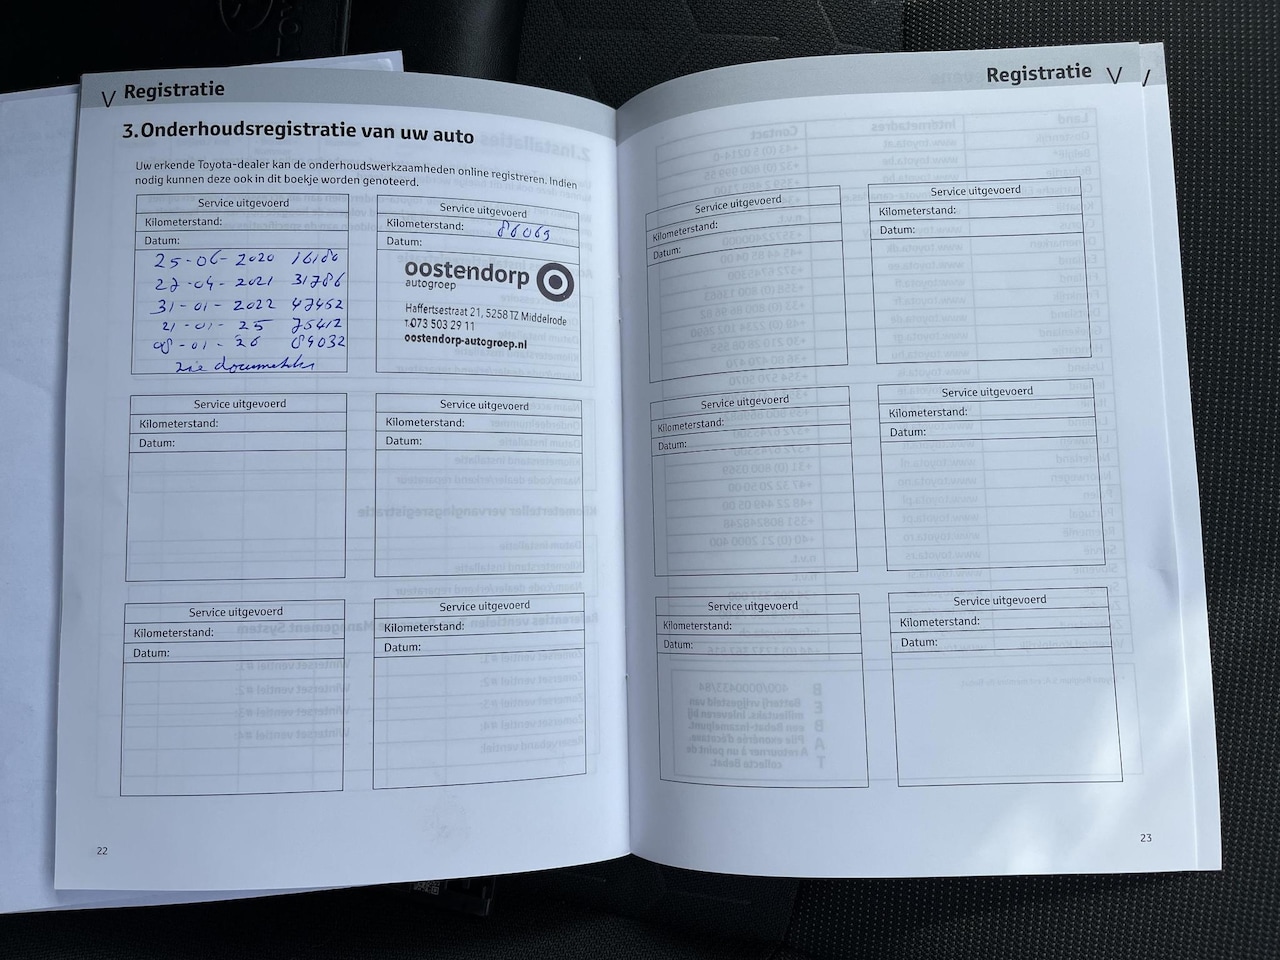 Registratie
3. Onderhoudsregistratie van uw auto
Uw erkende Toyota-dealer kan de onderhoudswerkzaamheden online registreren. Indien
nodig kunnen deze ook in dit boekje worden genoteerd.
Service uitgevoerd
Kilometerstand:
Datum:
25-06-2020 16180
27-04-2021 31786
31-01-2022 47452
21-01-25 75412
08-01-26 84032
zie documenten
Service uitgevoerd
Kilometerstand: 86069
Datum:
oostendorp
autogroep
Haffertsestraat 21, 5258 TZ Middelrode
T.073 503 29 11
oostendorp-autogroep.nl
Service uitgevoerd
Kilometerstand:
Datum:
Service uitgevoerd
Kilometerstand:
Datum:
Service uitgevoerd
Kilometerstand:
Datum:
Service uitgevoerd
Kilometerstand:
Datum:
22
Registratie
Service uitgevoerd
Kilometerstand:
Datum:
Service uitgevoerd
Kilometerstand:
Datum:
Service uitgevoerd
Kilometerstand:
Datum:
Service uitgevoerd
Kilometerstand:
Datum:
Service uitgevoerd
Kilometerstand:
Datum:
Service uitgevoerd
Kilometerstand:
Datum:
23